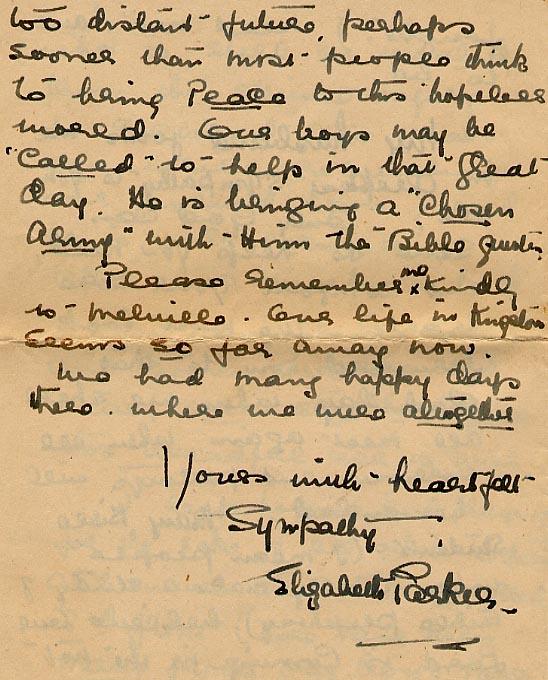 too distant future, perhaps
sooner than most people think
to bring Peace to this hopeless
world. Our boys may be
"Called" to help in that "Great
Day. He is bringing a "Chosen
Army" with Him the Bible quotes.
Please remember me kindly
to Melville. Our life in Kingston
seems so far away now.
We had many happy days
there. where we were altogether
Yours with heartfelt
Sympathy.
Elizabeth Parker